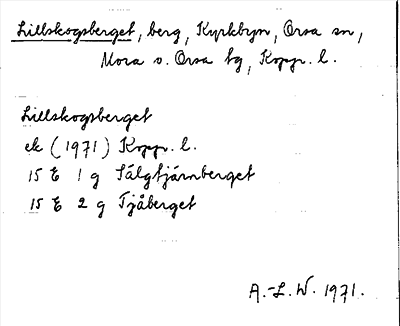 Lillskogsberget, berg, Kyrkbyn, Orsa sn,
Mora o. Orsa tg, Kopp. l.
Lillskogsberget
ek (1971) Kopp. l.
15 E 1 g Sälgtjärnberget
15 E 2 g Tjåberget
A.-L. W. 1971.